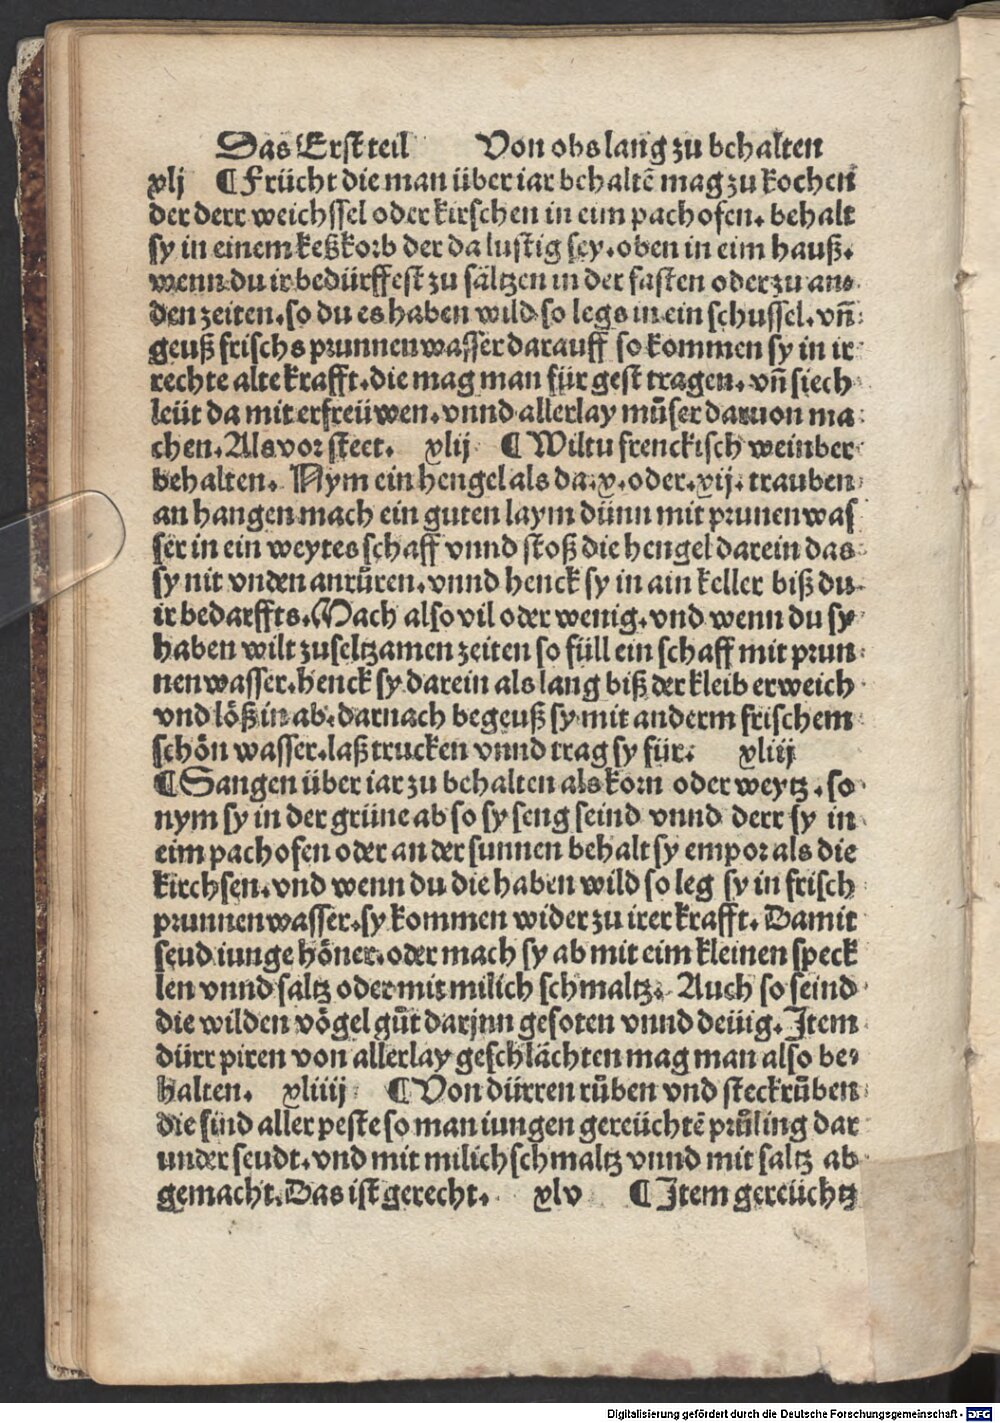 Das Erst teil Von obs lang zu behalten
xlj ¶ Frücht die man über iar behaltē mag zu kochen
der derr weichssel oder kirschen in eim pachofen. behalt
sy in einem keßkorb der da lustig sey. oben in eim hauß.
wenn du ir bedürffest zu sältzen in der fasten oder zu an⸗
den zeiten. so du es haben wild so legs in ein schussel. vn̄
geuß frischs prunnenwasser darauff so kommen sy in ir
rechte alte krafft. die mag man für gest tragen. vn̄ siech
leüt da mit erfreüwen. vnnd allerlay můser daruon ma
chen. Als vor steet. xlij ¶ Wiltu frenckisch weinber
behalten. Nym ein hengel als da .x. oder .xij. trauben
an hangen mach ein guten laym dünn mit prunenwas
ser in ein weytes schaff vnnd stoß die hengel darein das
sy nit vnden anrůren. vnnd henck sy in ain keller biß du
ir bedarffts. Mach also vil oder wenig. vnd wenn du sy
haben wilt zu seltzamen zeiten so füll ein schaff mit prun
nenwasser. henck sy darein als lang biß der kleib erweich
vnd löß in ab. darnach begeuß sy mit anderm frischem
schön wasser. laß trucken vnnd trag sy für. xliij
¶ Sangen über iar zu behalten als korn oder weytz. so
nym sy in der grüne ab so sy seng seind vnnd derr sy in
eim pachofen oder an der sunnen behalt sy empor als die
kirchsen. vnd wenn du die haben wild so leg sy in frisch
prunnenwasser. sy kommen wider zu irer krafft. Damit
seud iunge höner. oder mach sy ab mit eim kleinen speck
len vnnd saltz oder mit milich schmaltz. Auch so seind
die wilden vögel gůt darjnn gesoten vnnd deüig. Item
dürr piren von allerlay geschlächten mag man also be⸗
halten. xliiij ¶ Von dürren růben vnd steckrůben
die sind aller peste so man iungen gereüchtē průling dar
vnder seudt. vnd mit milichschmaltz vnnd mit saltz ab
gemacht. Das ist gerecht. xlv ¶ Item gereüchtz
Digitalisierung gefördert durch die Deutsche Forschungsgemeinschaft - DFG